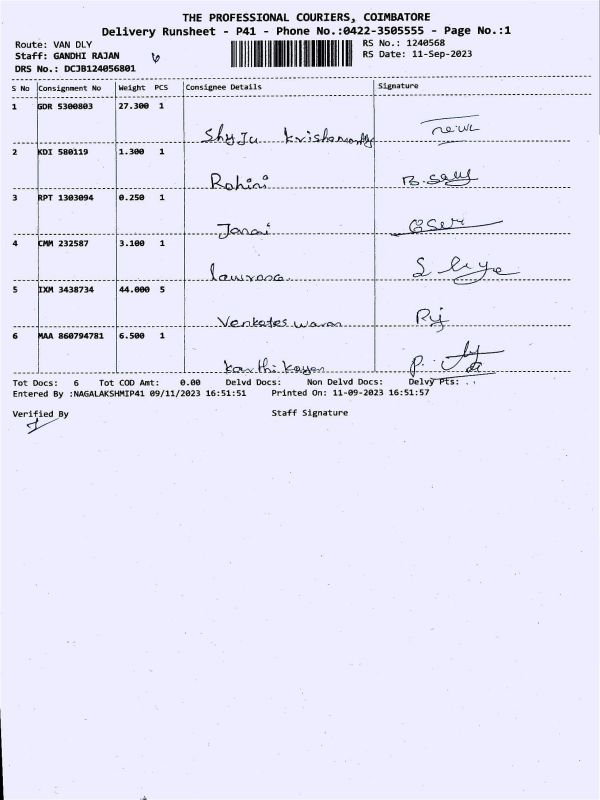 THE PROFESSIONAL COURIERS, COIMBATORE
Delivery Runsheet - P41 - Phone No.:0422-3505555 - Page No.:1
Route: VAN DLY
RS No.: 1240568
Staff: GANDHI RAJAN
RS Date: 11-Sep-2023
DRS No.: DCJB124056801
S No Consignment No Weight PCS Consignee Details Signature
1 GDR 5300803 27.300 1
Shyju
2 KDI 580119 1.300 1
Rohini
3 RPT 1303094 0.250 1
Janai
4 CMM 232587 3.100 1
5 IXM 3438734 44.000 5
Venkateswaran
6 MAA 860794781 6.500 1
Karthikayan
Tot Docs: 6 Tot COD Amt: 0.00 Delvd Docs: Non Delvd Docs: Delvy Pts:
Entered By :NAGALAKSHMIP41 09/11/2023 16:51:51 Printed On: 11-09-2023 16:51:57
Verified By Staff Signature